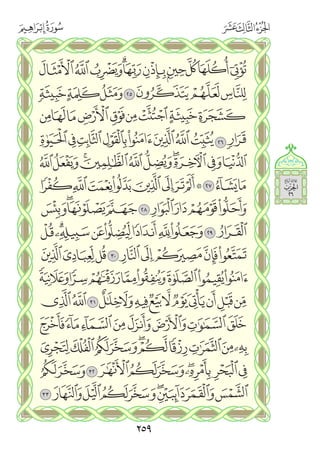 الجُزْءُ الثَّالِثَ عَشَرَ سُورَةُ إِبْرَاهِيمَ
تُؤْتِىٓ أُكُلَهَا كُلَّ حِينٍۭ بِإِذْنِ رَبِّهَا ۗ وَيَضْرِبُ ٱللَّهُ ٱلْأَمْثَالَ
لِلنَّاسِ لَعَلَّهُمْ يَتَذَكَّرُونَ ٢٥ وَمَثَلُ كَلِمَةٍ خَبِيثَةٍ
كَشَجَرَةٍ خَبِيثَةٍ ٱجْتُثَّتْ مِن فَوْقِ ٱلْأَرْضِ مَا لَهَا مِن
قَرَارٍ ٢٦ يُثَبِّتُ ٱللَّهُ ٱلَّذِينَ ءَامَنُوا۟ بِٱلْقَوْلِ ٱلثَّابِتِ فِى ٱلْحَيَوٰةِ
ٱلدُّنْيَا وَفِى ٱلْـَٔاخِرَةِ ۖ وَيُضِلُّ ٱللَّهُ ٱلظَّـٰلِمِينَ ۚ وَيَفْعَلُ ٱللَّهُ
مَا يَشَآءُ ٢٧ أَلَمْ تَرَ إِلَى ٱلَّذِينَ بَدَّلُوا۟ نِعْمَتَ ٱللَّهِ كُفْرًا
وَأَحَلُّوا۟ قَوْمَهُمْ دَارَ ٱلْبَوَارِ ٢٨ جَهَنَّمَ يَصْلَوْنَهَا ۖ وَبِئْسَ
ٱلْقَرَارُ ٢٩ وَجَعَلُوا۟ لِلَّهِ أَندَادًا لِّيُضِلُّوا۟ عَن سَبِيلِهِۦ ۗ قُلْ
تَمَتَّعُوا۟ فَإِنَّ مَصِيرَكُمْ إِلَى ٱلنَّارِ ٣٠ قُل لِّعِبَادِىَ ٱلَّذِينَ
ءَامَنُوا۟ يُقِيمُوا۟ ٱلصَّلَوٰةَ وَيُنفِقُوا۟ مِمَّا رَزَقْنَـٰهُمْ سِرًّا وَعَلَانِيَةً
مِّن قَبْلِ أَن يَأْتِىَ يَوْمٌ لَّا بَيْعٌ فِيهِ وَلَا خِلَـٰلٌ ٣١ ٱللَّهُ ٱلَّذِى
خَلَقَ ٱلسَّمَـٰوَٰتِ وَٱلْأَرْضَ وَأَنزَلَ مِنَ ٱلسَّمَآءِ مَآءً فَأَخْرَجَ
بِهِۦ مِنَ ٱلثَّمَرَٰتِ رِزْقًا لَّكُمْ ۖ وَسَخَّرَ لَكُمُ ٱلْفُلْكَ لِتَجْرِىَ
فِى ٱلْبَحْرِ بِأَمْرِهِۦ ۖ وَسَخَّرَ لَكُمُ ٱلْأَنْهَـٰرَ ٣٢ وَسَخَّرَ لَكُمُ
ٱلشَّمْسَ وَٱلْقَمَرَ دَآئِبَيْنِ ۖ وَسَخَّرَ لَكُمُ ٱلَّيْلَ وَٱلنَّهَارَ ٣٣
٢٥٩